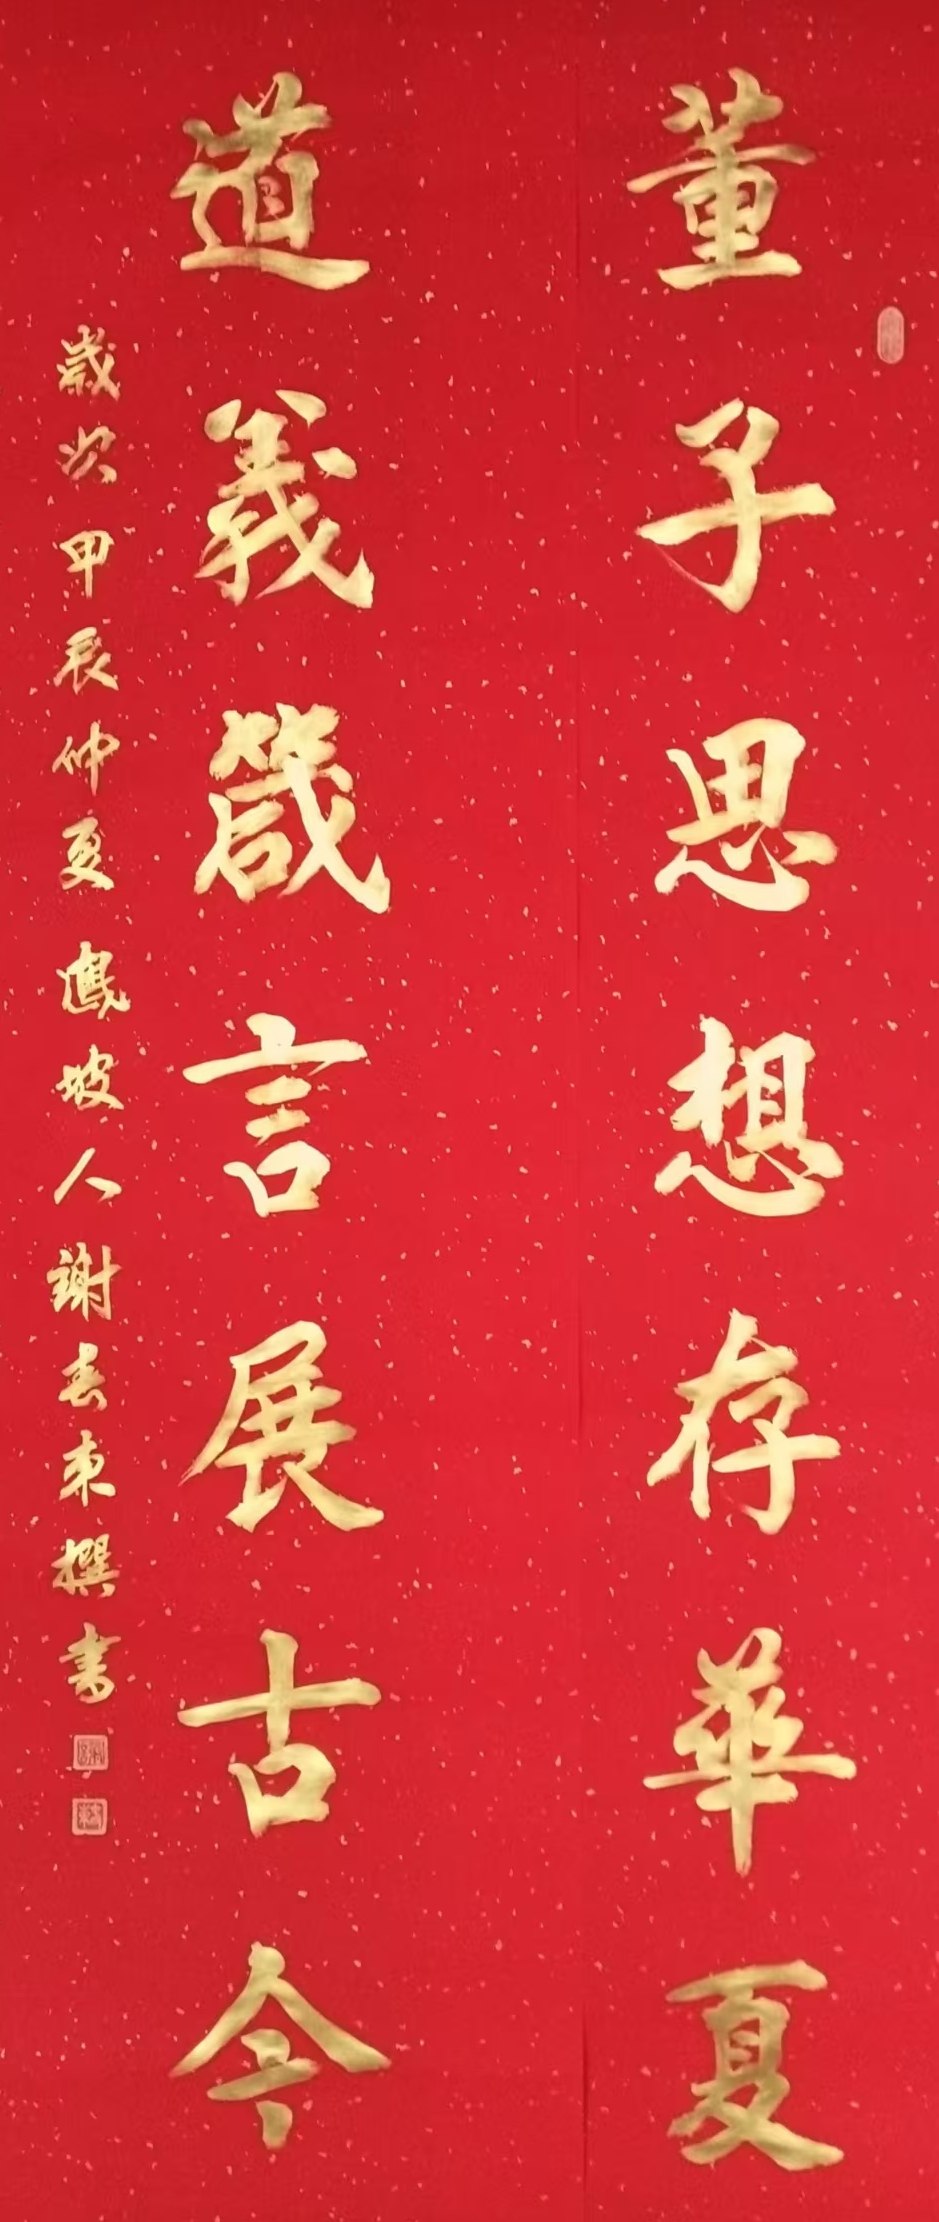 董子思想存華夏
道義箴言展古今
歲次甲辰仲夏鳳坡人謝春東撰書